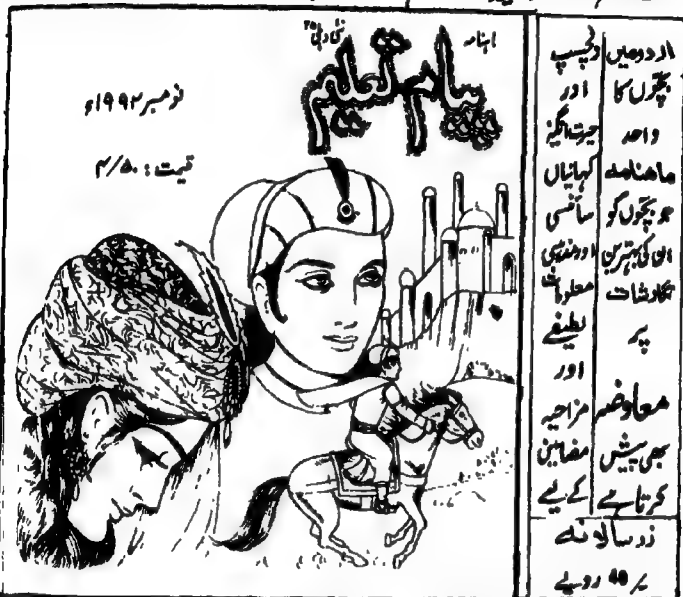 ماہنامہ
نئی دہلی ۲۵
پیام تعلیم
نومبر ۱۹۹۲ء
قیمت: ۴/۵۰
اردو میں
بچوں کا
واحد
ماہنامہ
جو بچوں کو
ان کی بہترین
نگارشات
پر
معاوضہ
بھی پیش
کرتا ہے
دلچسپ
اور
حیرت انگیز
کہانیاں
سائنسی
اور مذہبی
معلومات
لطیفے
اور
مزاحیہ
مضامین
کے لیے
زر سالانہ
۴۵ روپے